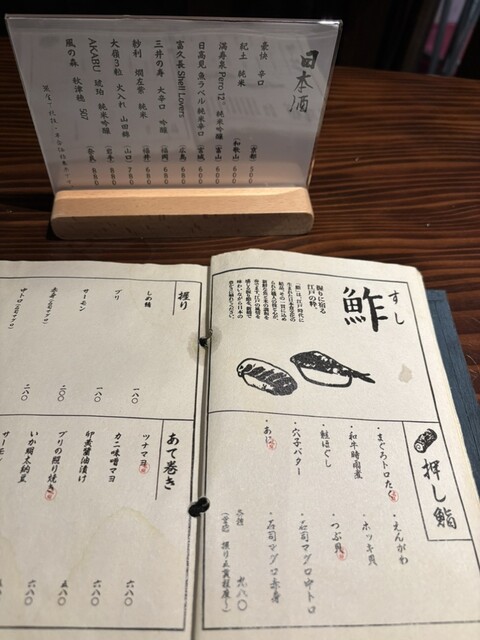 日本酒
豪快 辛口 (京都) 500
紀土 純米 (和歌山) 500
満寿泉 Pero 12. 純米吟醸 (富山) 600
日高見 魚ラベル 純米辛口 (宮城) 680
富久長 Shell Lovers (広島) 680
三井の寿 大辛口 吟醸 (福岡) 680
紗利 燗左紫 純米 (福井) 680
大嶺3粒 火入れ 山田錦 (山口) 780
AKABU 琥珀 純米吟醸 (岩手) 880
風の森 秋津穂 507 (奈良) 880
すし
鮓
握りに宿る
江戸の粋。
押し鮨
・まぐろトロたく
・和牛時雨煮
・鮭ほぐし
・穴子バター
・あじ
・えんがわ
・ホッキ貝
・つぶ貝
・石司マグロ中トロ
・石司マグロ赤身
各種 九八〇
握り
しめ鯖 一八〇
ブリ 一八〇
サーモン
赤身 二〇〇
中トロ 二八〇
あて巻き
ツナマヨ 六八〇
カニ味噌マヨ 六八〇
卵黄醤油漬け 六八〇
ブリの照り焼き 五八〇
いか明太納豆 六八〇
サーモン